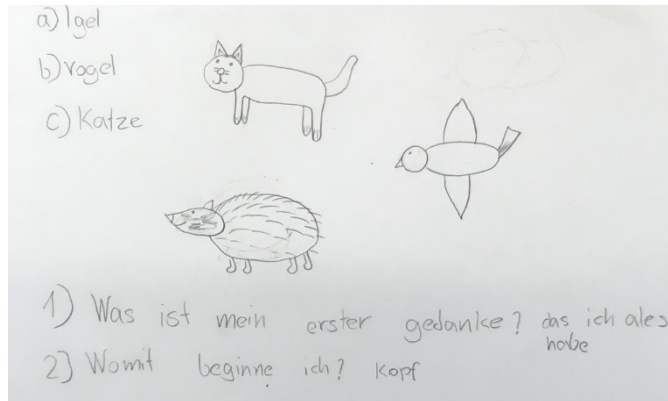 a) Igel
b) vogel
c) Katze
1) Was ist mein erster gedanke? das ich ales
habe
2) Womit beginne ich? Kopf